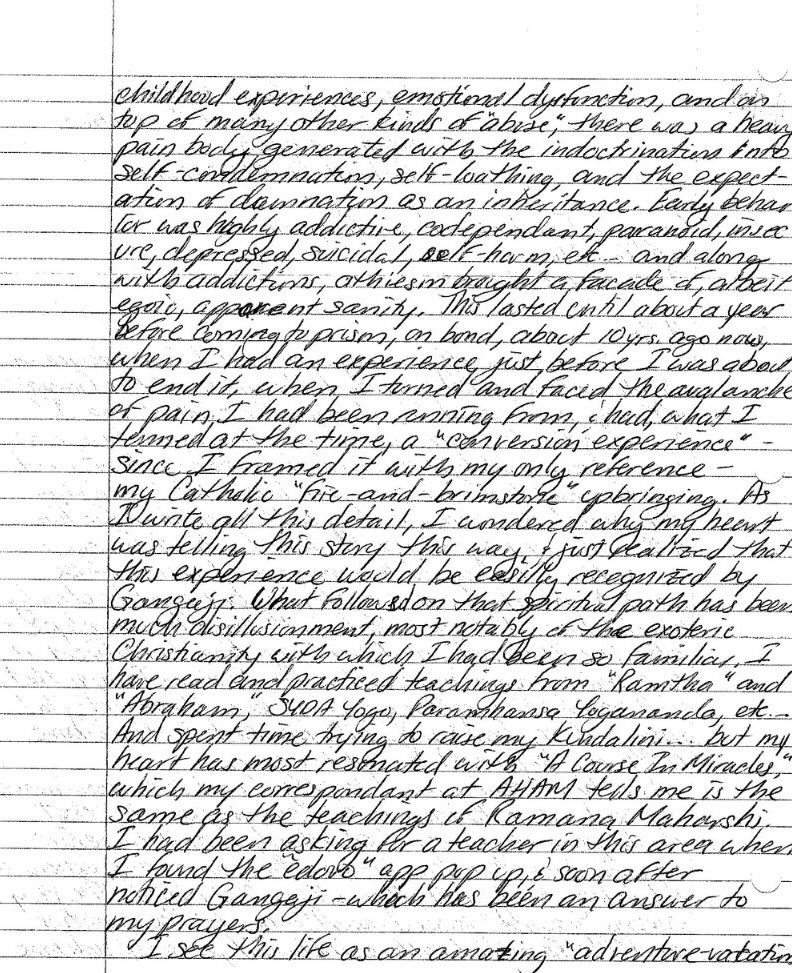 childhood experiences, emotional dysfunction, and on
top of many other kinds of "abuse", there was a heavy
pain body generated with the indoctrination into
self-condemnation, self-loathing, and the expect-
ation of damnation as an inheritance. Early behav
ior was highly addictive, codependant, paranoid, insec
ure, depressed, suicidal, self-harm, etc... and along
with addictions, athiesm brought a facade of, albeit
egoic, apparent sanity. This lasted until about a year
before coming to prison, on bond, about 10 yrs. ago now,
when I had an experience just before I was about
to end it, when I turned and faced the avalanche
of pain I had been running from, & had, what I
termed at the time, a "conversion experience" -
since I framed it with my only reference -
my Catholic "fire-and-brimstone" upbringing. As
I write all this detail, I wondered why my heart
was telling this story this way, & just realized that
this experience would be easily recognized by
Gangaji. What followed on that spiritual path has been
much disillusionment, most notably of the exoteric
Christianity with which I had been so familiar. I
have read and practiced teachings from "Ramtha" and
"Abraham," SYDA Yoga, Paramhansa Yogananda, etc...
And spent time trying to raise my Kundalini... but my
heart has most resonated with "A Course In Miracles,"
which my correspondant at AHAM tells me is the
same as the teachings of Ramana Maharshi.
I had been asking for a teacher in this area when
I found the "edovo" app pop up, & soon after
noticed Gangaji - which has been an answer to
my prayers.
I see this life as an amazing "adventure-vacation